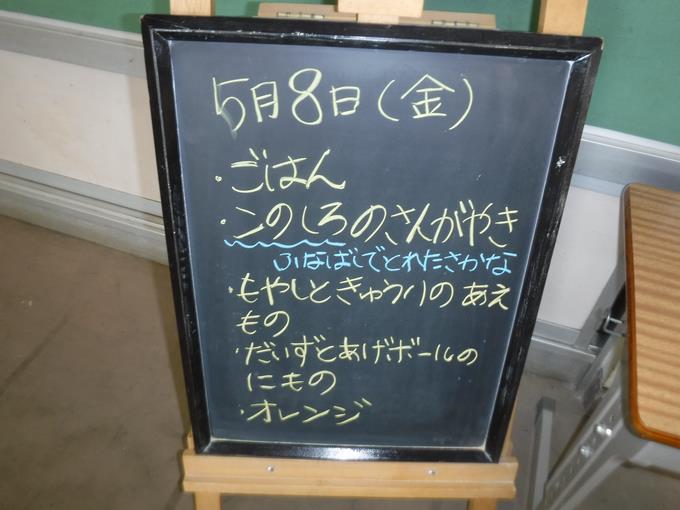 5月8日(金)
・ごはん
・このしろのさんがやき
ふなばしでとれたさかな
・もやしときゅうりのあえ
もの
・だいずとあげボールの
にもの
・オレンジ